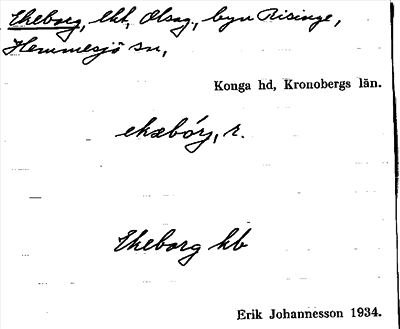 Ekeborg, lht, Olsag, byn Risinge,
Hemmesjö sn,
Konga hd, Kronobergs län.
ekæbórj, r.
Ekeborg kb
Erik Johannesson 1934.